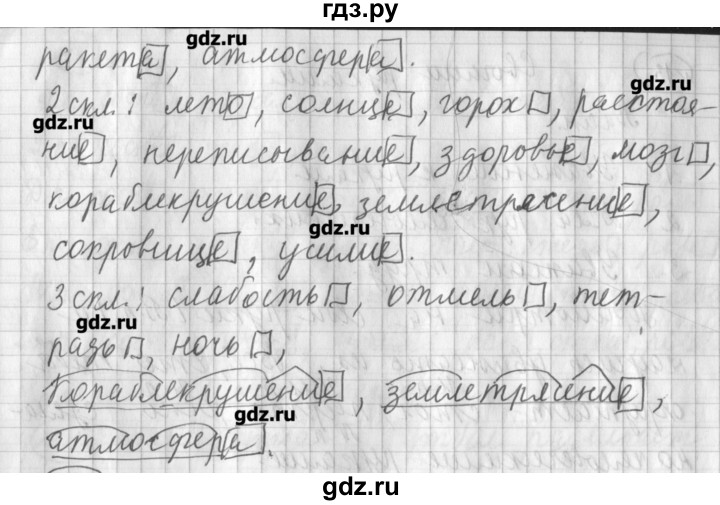 гдз.ру
gdz.ru
ракета, атмосфера.
gdz.ru
2 скл.: лето, солнце, горох, расстоя-
gdz.ru
ние, переписывание, здоровье, мозг,
кораблекрушение, землетрясение,
gdz.ru
сокровище, усилие.
3 скл.: слабость, отмель, тет-
gdz.ru
радь, ночь,
Кораблекрушение, землетрясение,
gdz.ru
атмосфера.
gdz.ru